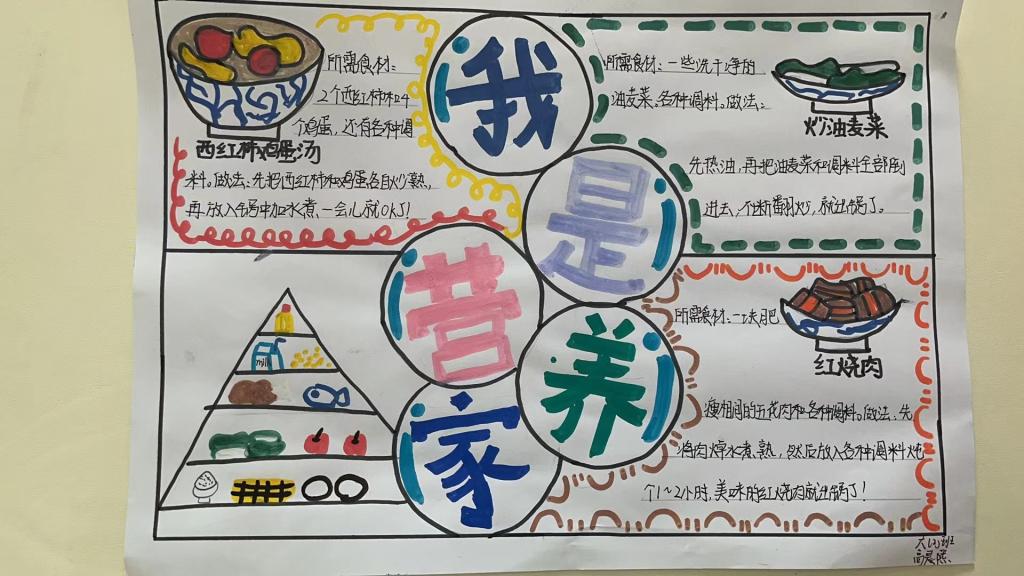 我
是
营
养
家
所需食材：
2个西红柿和4
个鸡蛋，还有各种调
西红柿鸡蛋汤
料。做法：先把西红柿和鸡蛋各自炒熟，
再放入锅中加水煮、一会儿就OK了！
所需食材：一些洗干净的
油麦菜、各种调料。做法：
炒油麦菜
先热油，再把油麦菜和调料全部倒
进去，不断翻炒，就出锅了。
milk
所需食材：一块肥
红烧肉
瘦相间的五花肉和各种调料。做法：先
将肉焯水煮熟，然后放入各种调料炖
个1~2小时，美味的红烧肉就出锅了！